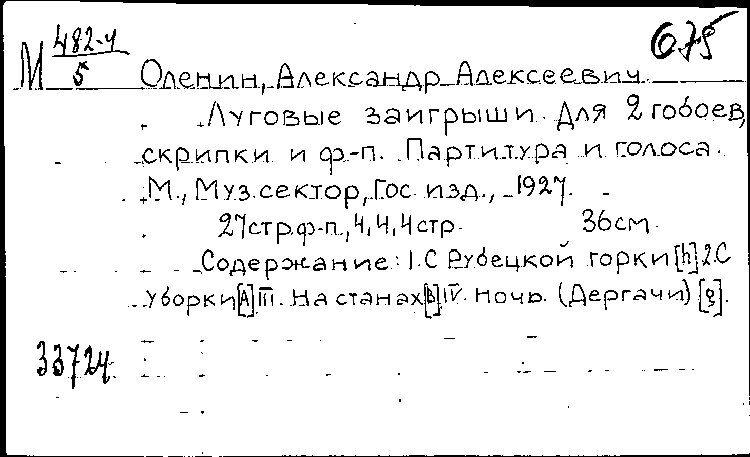 675
М 482-4
5 Оленин, Александр Алексеевич
Луговые заигрыши. Для 2 гобоев,
скрипки и ф-п. Партитура и голоса.
М., Муз.сектор, Гос. изд., 1927.
27стр.ф-п., 4, 4, 4стр. 36см.
Содержание: 1. С Рубецкой горки [h] 2. С
уборки [A] III. На станах [b] IV. Ночь. (Дергачи) [g].
33724